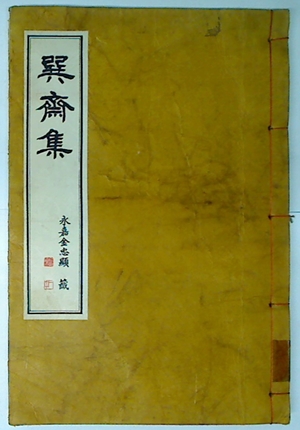 巽齋集
永嘉金忠顯 籤